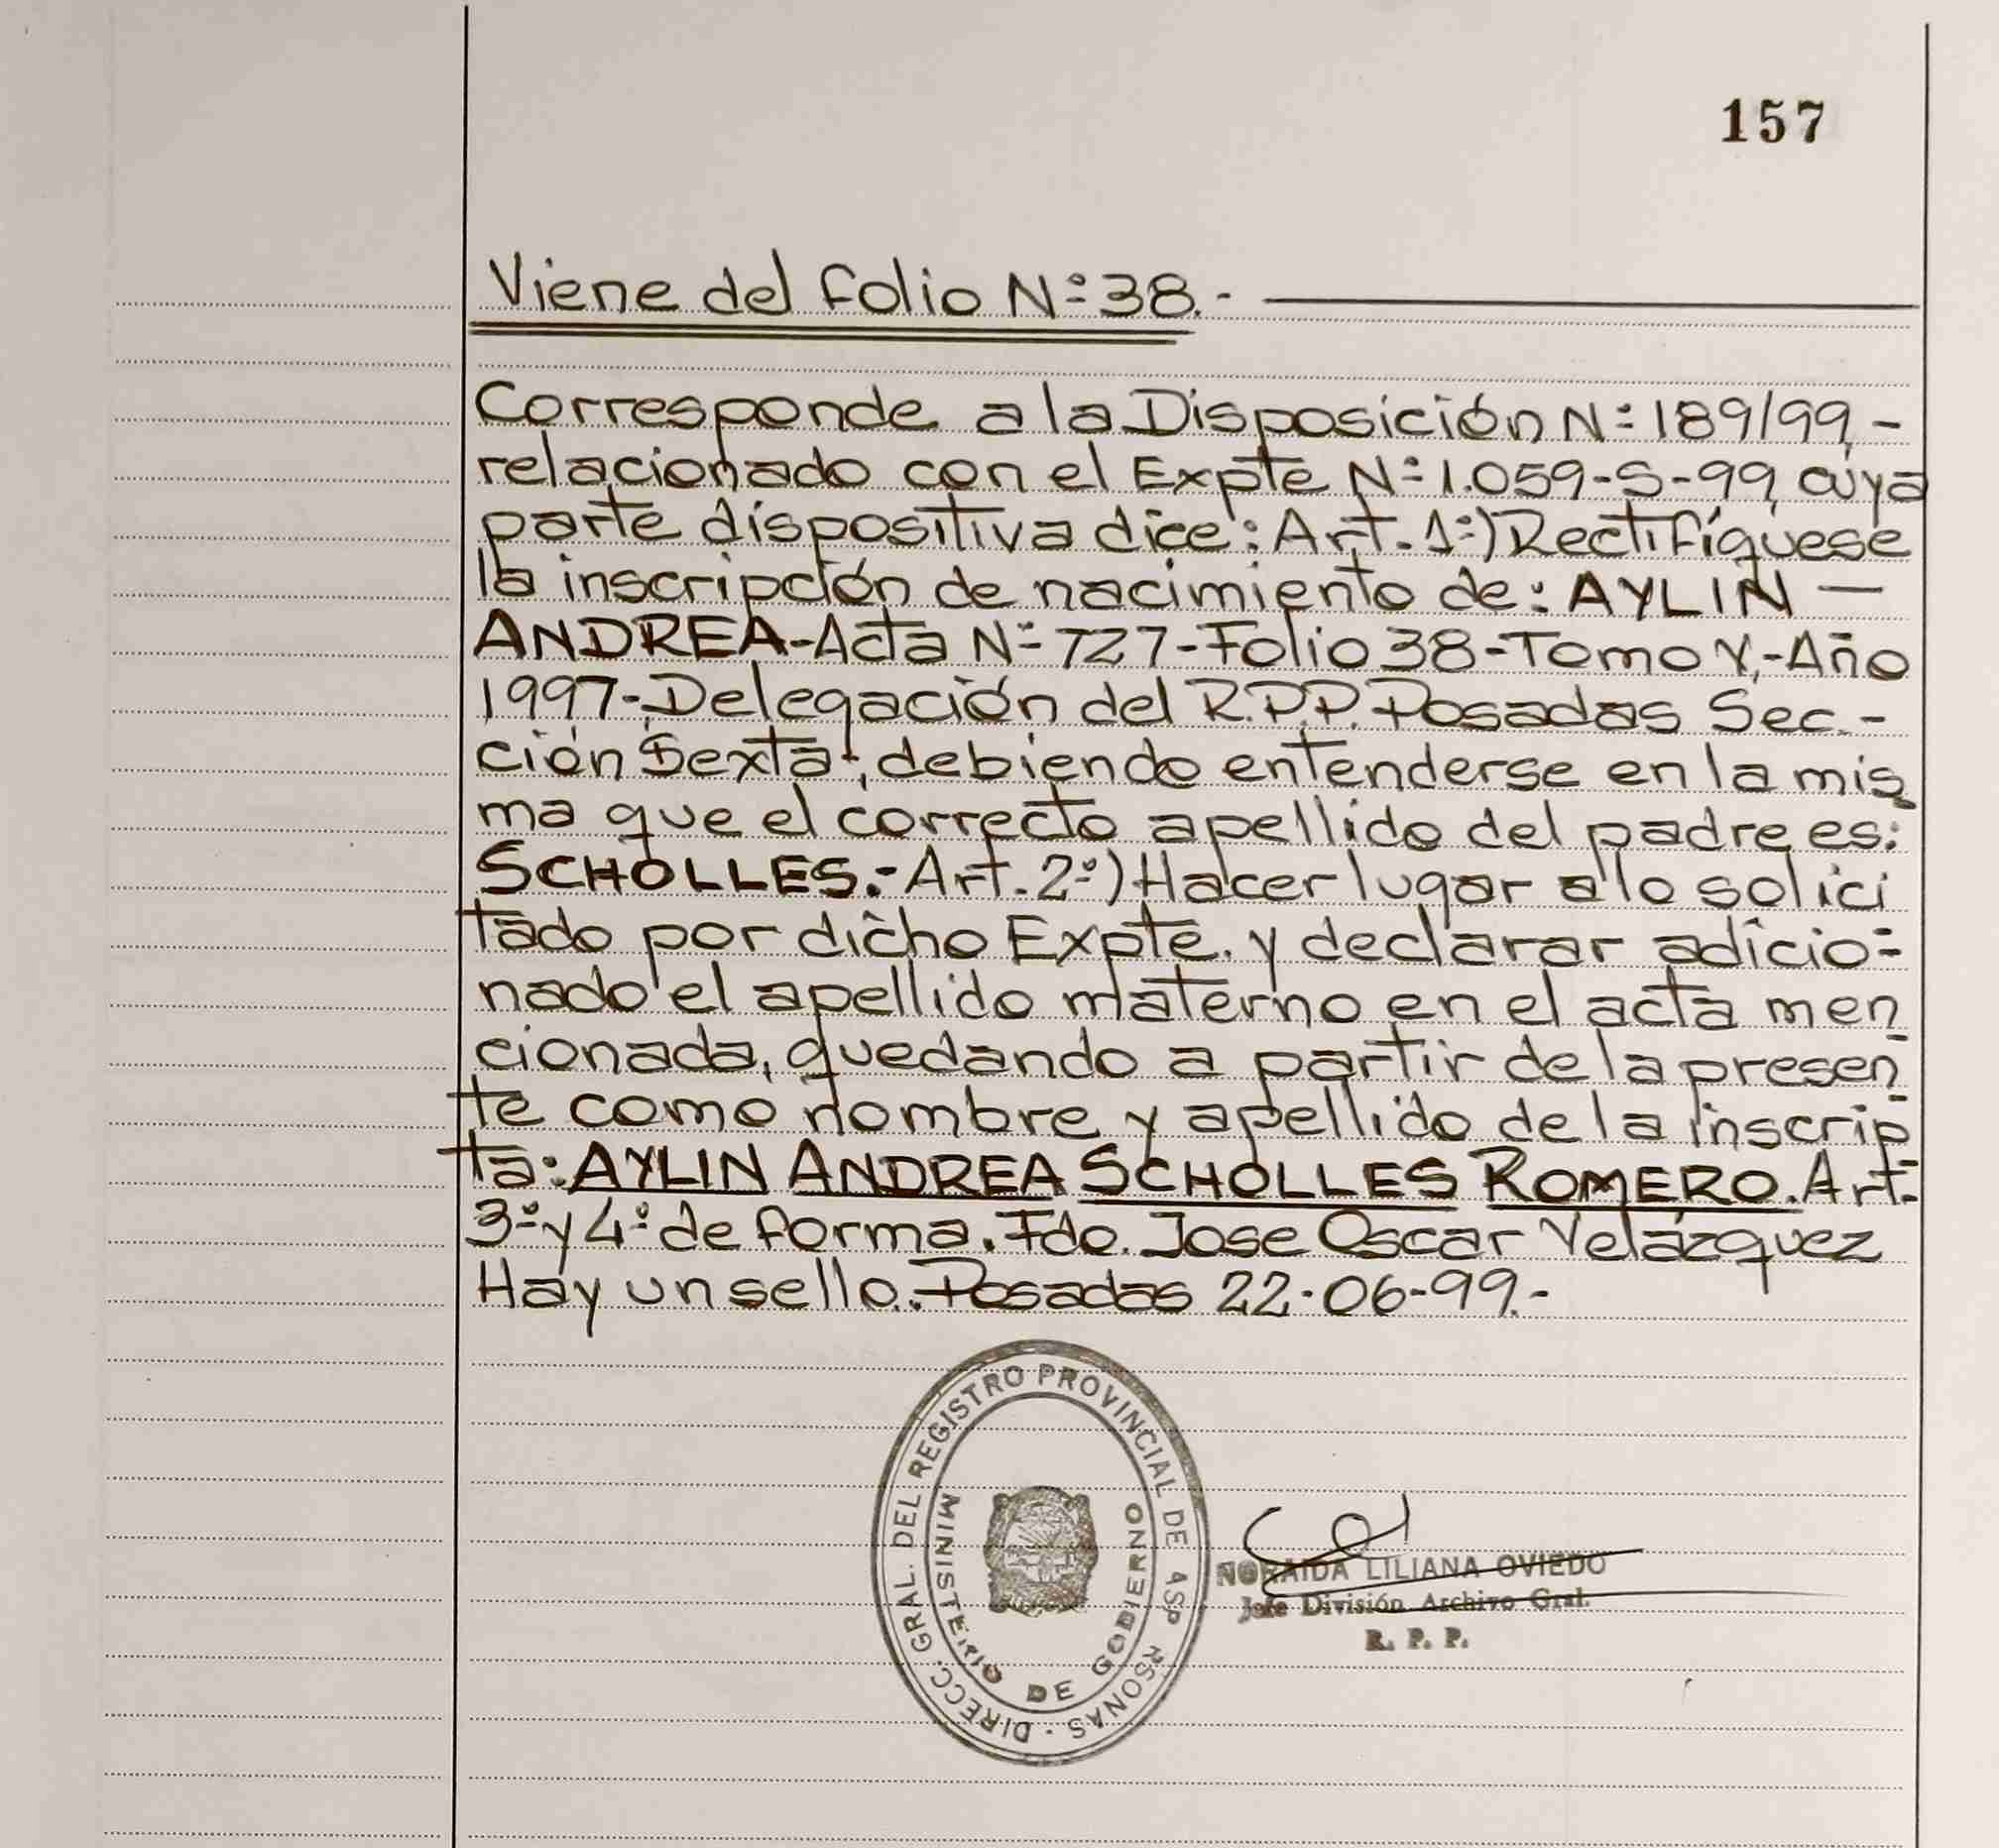 157
Viene del folio Nº 38.-
Corresponde a la Disposición Nº 189/99,-
relacionado con el Expte Nº 1.059-S-99, cuya
parte dispositiva dice: Art. 1º) Rectifíquese
la inscripción de nacimiento de: AYLIN —
ANDREA-Acta Nº 727-Folio 38-Tomo V,-Año
1997-Delegación del R.P.P. Posadas Sec.-
ción Sexta-, debiendo entenderse en la mis
ma que el correcto apellido del padre es:
SCHOLLES.-Art. 2º) Hacer lugar a lo solici
tado por dicho Expte. y declarar adicio-
nado el apellido materno en el acta men
cionada, quedando a partir de la presen
te como nombre y apellido de la inscrip
ta: AYLIN ANDREA SCHOLLES ROMERO. Art.
3º y 4º de forma. Fdo. Jose Oscar Velázquez
Hay un sello. Posadas 22-06-99.-
DIRECC. GRAL. DEL REGISTRO PROVINCIAL DE ASP RSONAS
MINISTERIO DE GOBIERNO
NORAIDA LILIANA OVIEDO
Jefe División Archivo Gral.
R. P. P.